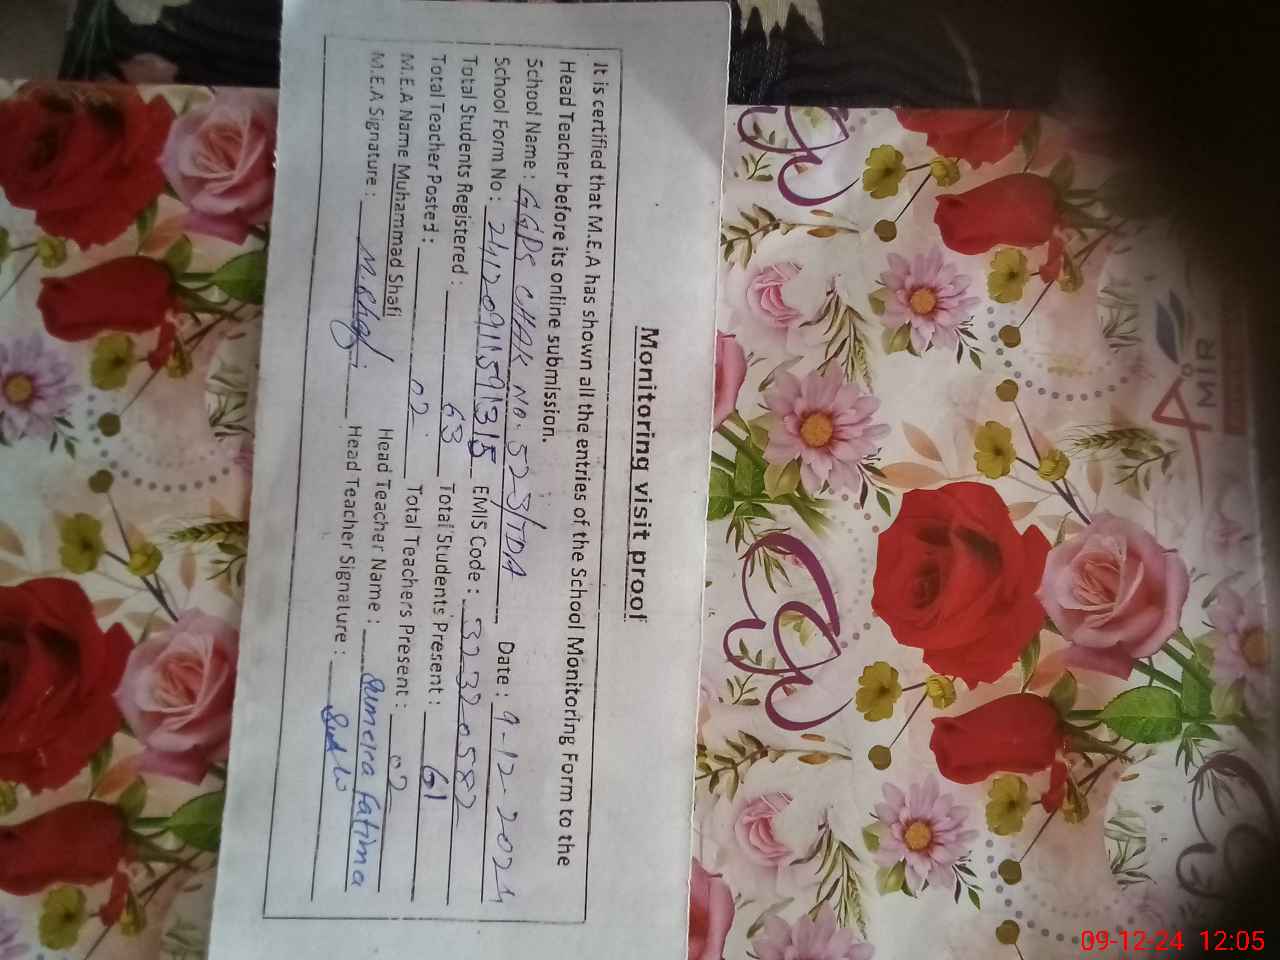 Monitoring visit proof
It is certified that M.E.A has shown all the entries of the School Monitoring Form to the
Head Teacher before its online submission.
School Name : GGPS CHAK NO. 523/TDA Date : 9-12-2024
School Form No : EMIS Code : 32320582
Total Students Registered : 63 Total Students Present : 61
Total Teacher Posted : 02 Total Teachers Present : 02
M.E.A Name Muhammad Shafi Head Teacher Name : Sumeira Fatima
M.E.A Signature : M.Shafi Head Teacher Signature :
AMIR
09-12-24 12:05